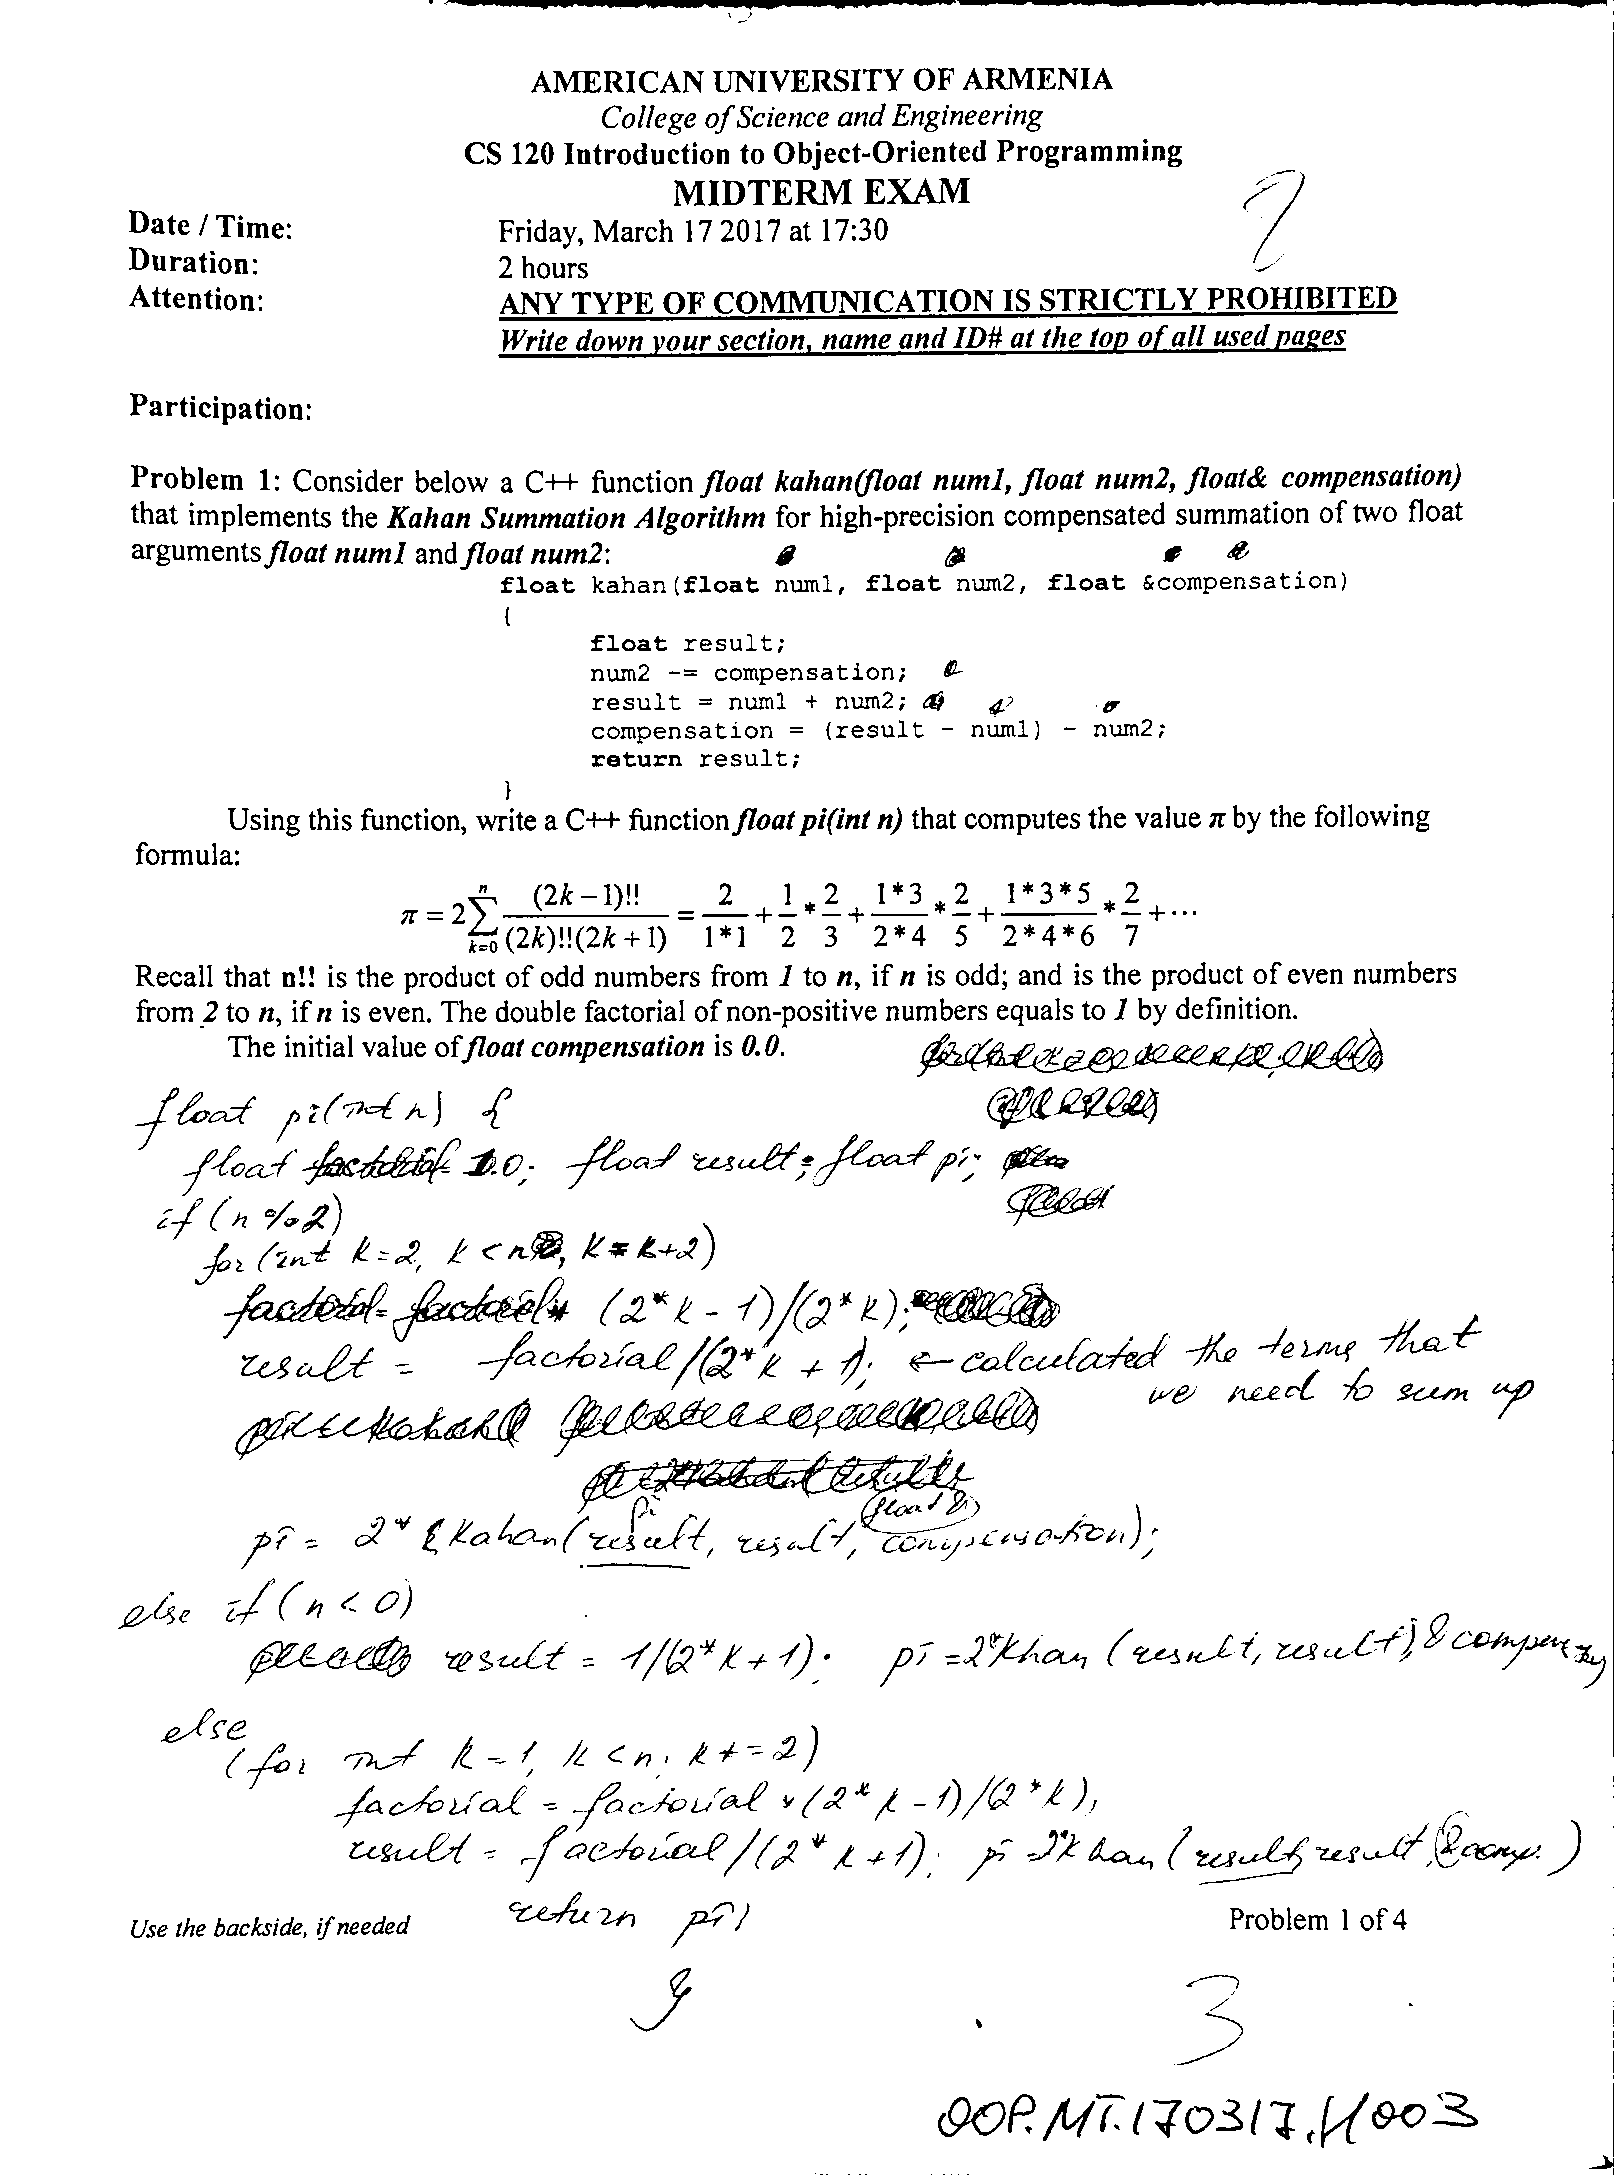 AMERICAN UNIVERSITY OF ARMENIA
College of Science and Engineering
CS 120 Introduction to Object-Oriented Programming
MIDTERM EXAM
Date / Time: Friday, March 17 2017 at 17:30
Duration: 2 hours
Attention: ANY TYPE OF COMMUNICATION IS STRICTLY PROHIBITED
Write down your section, name and ID# at the top of all used pages
Participation:
Problem 1: Consider below a C++ function float kahan(float num1, float num2, float& compensation)
that implements the Kahan Summation Algorithm for high-precision compensated summation of two float
arguments float num1 and float num2:
float kahan(float num1, float num2, float &compensation)
{
float result;
num2 -= compensation;
result = num1 + num2;
compensation = (result - num1) - num2;
return result;
}
Using this function, write a C++ function float pi(int n) that computes the value π by the following
formula:
π = 2 Σ (k=0 to n) (2k-1)!! / ((2k)!!(2k+1)) = 2/(1*1) + 1/2 * 2/3 + (1*3)/(2*4) * 2/5 + (1*3*5)/(2*4*6) * 2/7 + ...
Recall that n!! is the product of odd numbers from 1 to n, if n is odd; and is the product of even numbers
from 2 to n, if n is even. The double factorial of non-positive numbers equals to 1 by definition.
The initial value of float compensation is 0.0.
float pi(int n) {
float factorial = 1.0; float result; float pi;
if (n % 2)
for (int k=2, k<n, k=k+2)
factorial = factorial * (2*k - 1)/(2*k);
result = factorial/(2*k + 1); ← calculated the terms that
we need to sum up
pi
float &
pi = 2* kahan(result, result, compensation);
else if (n < 0)
result = 1/(2*k+1); pi =2*khan (result, result), &
else
(for int k=1, k<n; k+=2)
factorial = factorial * (2*k-1)/(2*k),
result = factorial/(2*k+1); pi =2*khan (result, result, &comp.)
return pi;
Use the backside, if needed
Problem 1 of 4
3
OOP.MT.170317.H003